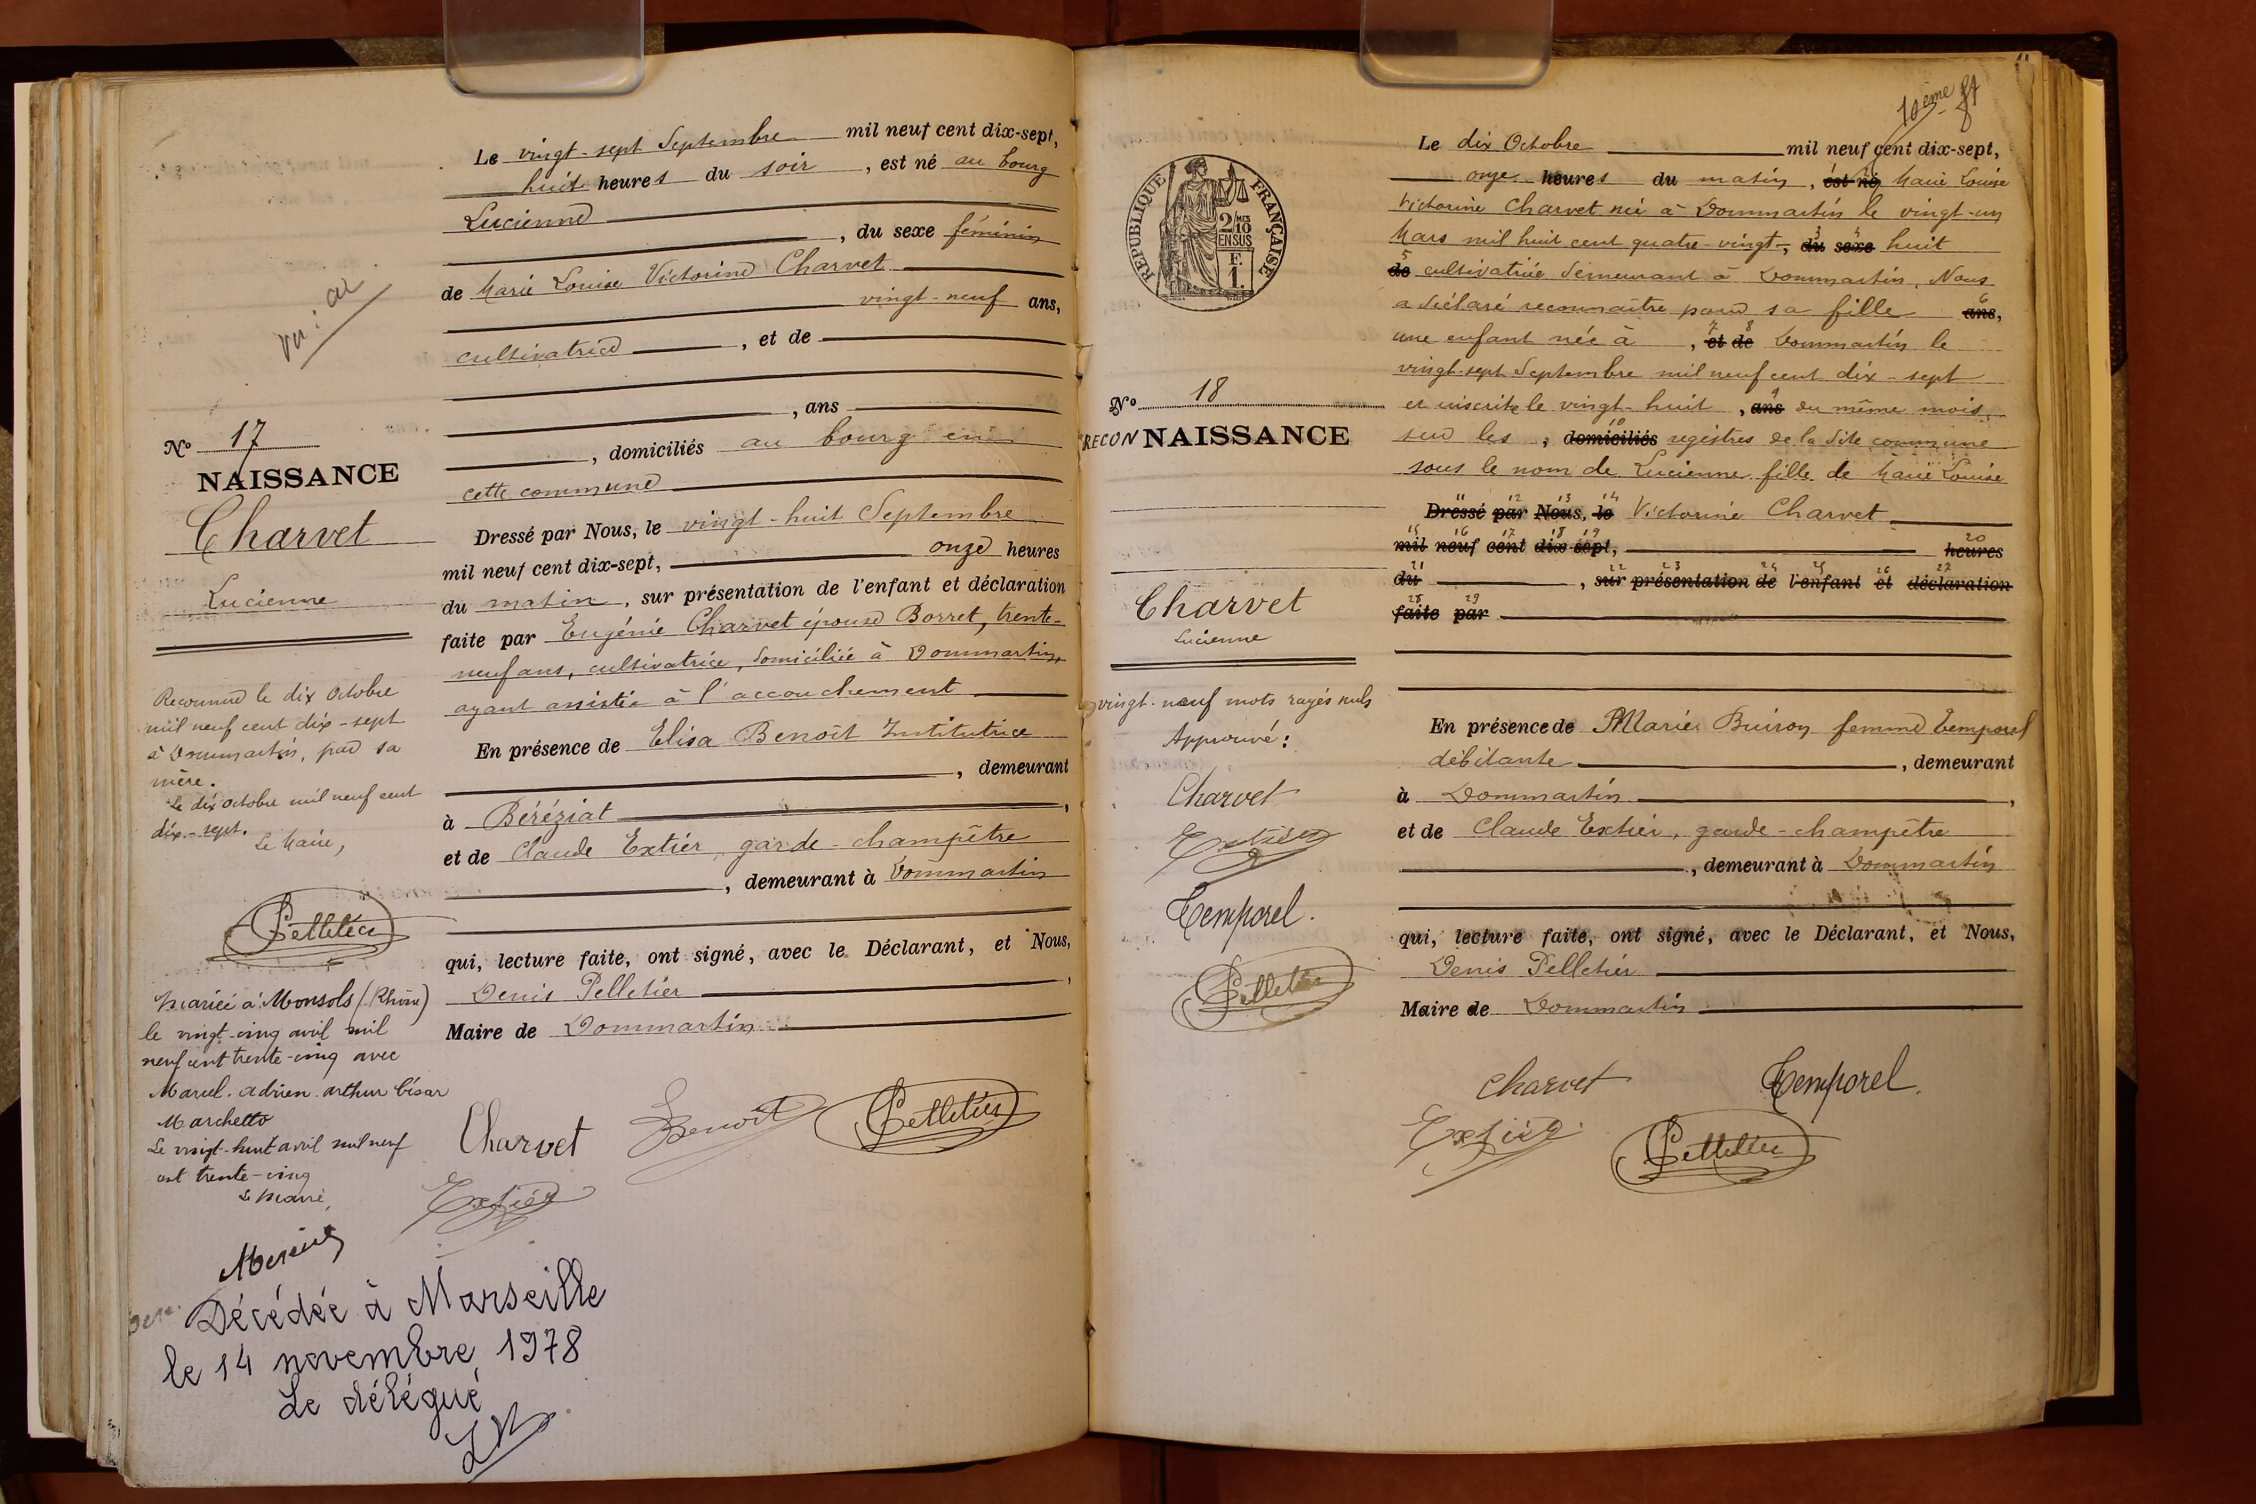 Le vingt-sept Septembre mil neuf cent dix-sept,
huit heures du soir, est né au bourg
Lucienne
, du sexe féminin
de Marie Louise Victorine Charvet
vingt-neuf ans,
cultivatrice, et de
, ans
, domiciliés au bourg en
cette commune
Dressé par Nous, le vingt-huit Septembre
mil neuf cent dix-sept, onze heures
du matin, sur présentation de l'enfant et déclaration
faite par Eugénie Charvet épouse Borret, trente-
neuf ans, cultivatrice, domiciliée à Dommartin,
ayant assisté à l'accouchement
En présence de Elisa Benoît Institutrice
, demeurant
à Béréziat,
et de Claude Extier, garde-champêtre
, demeurant à Dommartin
qui, lecture faite, ont signé, avec le Déclarant, et Nous,
Denis Pelletier,
Maire de Dommartin
Charvet Benoit Pelletier
Extier
No 17
NAISSANCE
Charvet
Lucienne
Reconnue le dix Octobre
mil neuf cent dix-sept
à Dommartin, par sa
mère.
Le dix Octobre mil neuf cent
dix-sept.
Le Maire,
Pelletier
Mariée à Monsols (Rhône)
le vingt-cinq avril mil
neuf cent trente-cinq avec
Marcel. Adrien. Arthur César
Marchetto
Le vingt-huit avril mil neuf
cent trente-cinq
Le Maire,
Décédée à Marseille
le 14 novembre 1978
Le délégué
10ème ft
RÉPUBLIQUE FRANÇAISE
2/10
EN SUS
F.
1.
Le dix Octobre mil neuf cent dix-sept,
onze heures du matin, est né Marie Louise
Victorine Charvet née à Dommartin le vingt-un
Mars mil huit cent quatre-vingt-, du sexe huit
3 4
de cultivatrice demeurant à Dommartin, Nous
5
a déclaré reconnaître pour sa fille ans,
6
une enfant née à, et de Dommartin le
7 8
vingt-sept Septembre mil neuf cent dix-sept
et inscrite le vingt-huit, ans du même mois,
9
sur les, domiciliés registres de la dite commune
10
sous le nom de Lucienne fille de Marie Louise
11 12 13 14
Dressé par Nous, le Victorine Charvet
15 16 17 18 19 20
mil neuf cent dix-sept, heures
21 22 23 24 25 26 27
du, sur présentation de l'enfant et déclaration
28 29
faite par
En présence de Marie Buiron femme Temporel
débitante, demeurant
à Dommartin,
et de Claude Extier, garde-champêtre
, demeurant à Dommartin
qui, lecture faite, ont signé, avec le Déclarant, et Nous,
Denis Pelletier
Maire de Dommartin
Charvet Temporel
Extier Pelletier
No 18
RECONNAISSANCE
Charvet
Lucienne
vingt-neuf mots rayés nuls
Approuvé:
Charvet
Extier
Temporel.
Pelletier